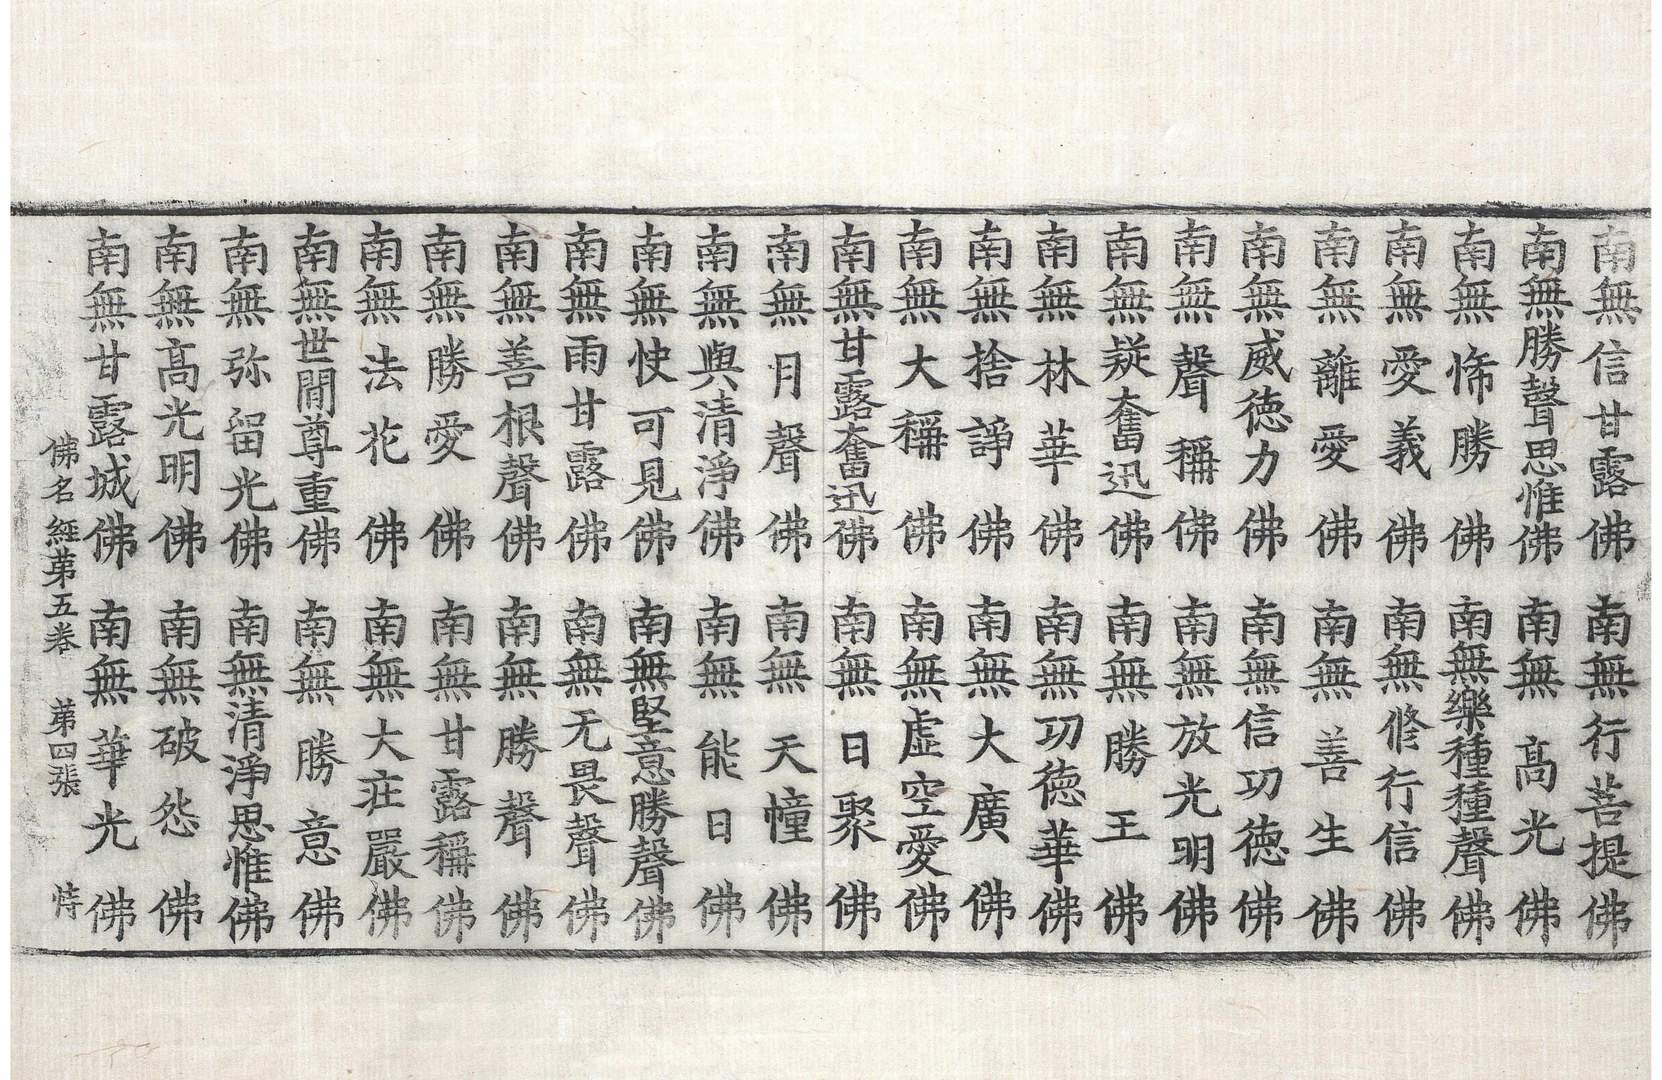 南無信甘露佛 南無行菩提佛
南無勝聲思惟佛 南無高光佛
南無悕勝佛 南無樂種種聲佛
南無愛義佛 南無修行信佛
南無離愛佛 南無善生佛
南無威德力佛 南無信功德佛
南無聲稱佛 南無放光明佛
南無疑奮迅佛 南無勝王佛
南無林華佛 南無功德華佛
南無捨諍佛 南無大廣佛
南無大稱佛 南無虛空愛佛
南無甘露奮迅佛 南無日聚佛
南無月聲佛 南無天幢佛
南無與清淨佛 南無能日佛
南無快可見佛 南無堅意勝聲佛
南無雨甘露佛 南無无畏聲佛
南無善根聲佛 南無勝聲佛
南無勝愛佛 南無甘露稱佛
南無法花佛 南無大莊嚴佛
南無世閒尊重佛 南無勝意佛
南無弥留光佛 南無清淨思惟佛
南無高光明佛 南無破怨佛
南無甘露城佛 南無華光佛
佛名經苐五卷 苐四張 恃